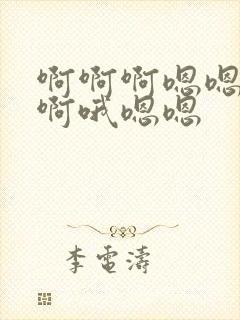 啊啊啊嗯嗯
啊哦嗯嗯
李電濤